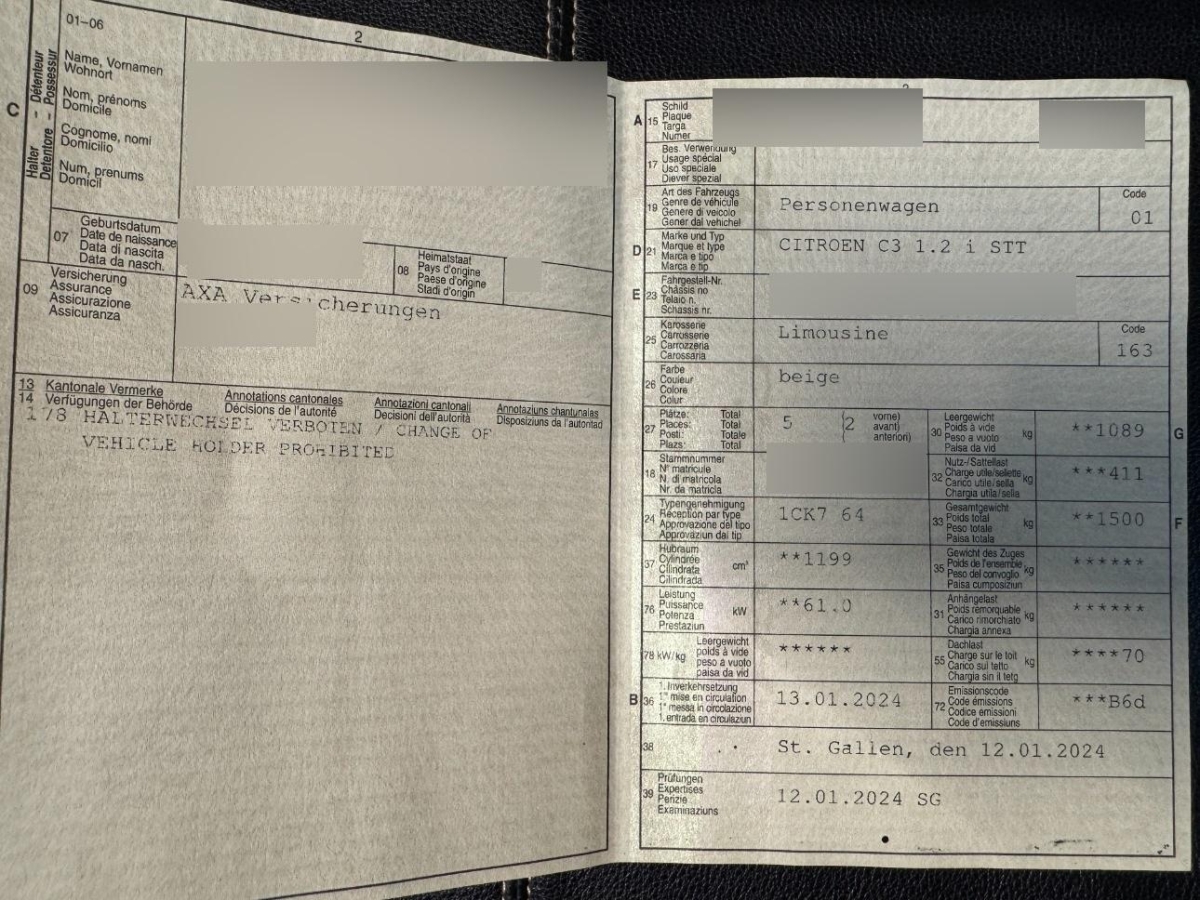 2
01-06
Name, Vornamen
Wohnort
Nom, prénoms
Domicile
Cognome, nomi
Domicilio
Num, prenums
Domicil
C
Halter - Détenteur
Detentore - Possessur
07
Geburtsdatum
Date de naissance
Data di nascita
Data da nasch.
08
Heimatstaat
Pays d'origine
Paese d'origine
Stadi d'origin
09
Versicherung
Assurance
Assicurazione
Assicuranza
AXA Versicherungen
13 Kantonale Vermerke Annotations cantonales Annotazioni cantonali Annotaziuns chantunalas
14 Verfügungen der Behörde Décisions de l'autorité Decisioni dell'autorità Disposiziuns da l'autoritad
178 HALTERWECHSEL VERBOTEN / CHANGE OF
VEHICLE HOLDER PROHIBITED
A 15
Schild
Plaque
Targa
Numer
17
Bes. Verwendung
Usage spécial
Uso speciale
Diever spezial
19
Art des Fahrzeugs
Genre de véhicule
Genere di veicolo
Gener dal vehichel
Personenwagen
Code
01
D 21
Marke und Typ
Marque et type
Marca e tipo
Marca e tip
CITROEN C3 1.2 i STT
E 23
Fahrgestell-Nr.
Châssis no
Telaio n.
Schassis nr.
25
Karosserie
Carrosserie
Carrozzeria
Carossaria
Limousine
Code
163
26
Farbe
Couleur
Colore
Colur
beige
27
Plätze: Total
Places: Total
Posti: Totale
Plazs: Total
5 (2
vorne)
avant)
anteriori)
30
Leergewicht
Poids à vide
Peso a vuoto
Paisa da vid
kg
**1089
G
18
Stammnummer
N° matricule
N. di matricola
Nr. da matricla
32
Nutz-/Sattellast
Charge utile/sellette
Carico utile/sella
Chargia utila/sella
kg
***411
24
Typengenehmigung
Réception par type
Approvazione del tipo
Approvaziun dal tip
1CK7 64
33
Gesamtgewicht
Poids total
Peso totale
Paisa totala
kg
**1500
F
37
Hubraum
Cylindrée
Cilindrata
Cilindrada
cm³
**1199
35
Gewicht des Zuges
Poids de l'ensemble
Peso del convoglio
Paisa cumposiziun
kg
******
76
Leistung
Puissance
Potenza
Prestaziun
kW
**61.0
31
Anhängelast
Poids remorquable
Carico rimorchiato
Chargia annexa
kg
******
78 kW/kg
Leergewicht
poids à vide
peso a vuoto
paisa da vid
******
55
Dachlast
Charge sur le toit
Carico sul tetto
Chargia sin il tetg
kg
****70
B 36
1. Inverkehrsetzung
1re mise en circulation
1a messa in circolazione
1. entrada en circulaziun
13.01.2024
72
Emissionscode
Code émissions
Codice emissioni
Code d'emissiuns
***B6d
38
St. Gallen, den 12.01.2024
39
Prüfungen
Expertises
Perizie
Examinaziuns
12.01.2024 SG